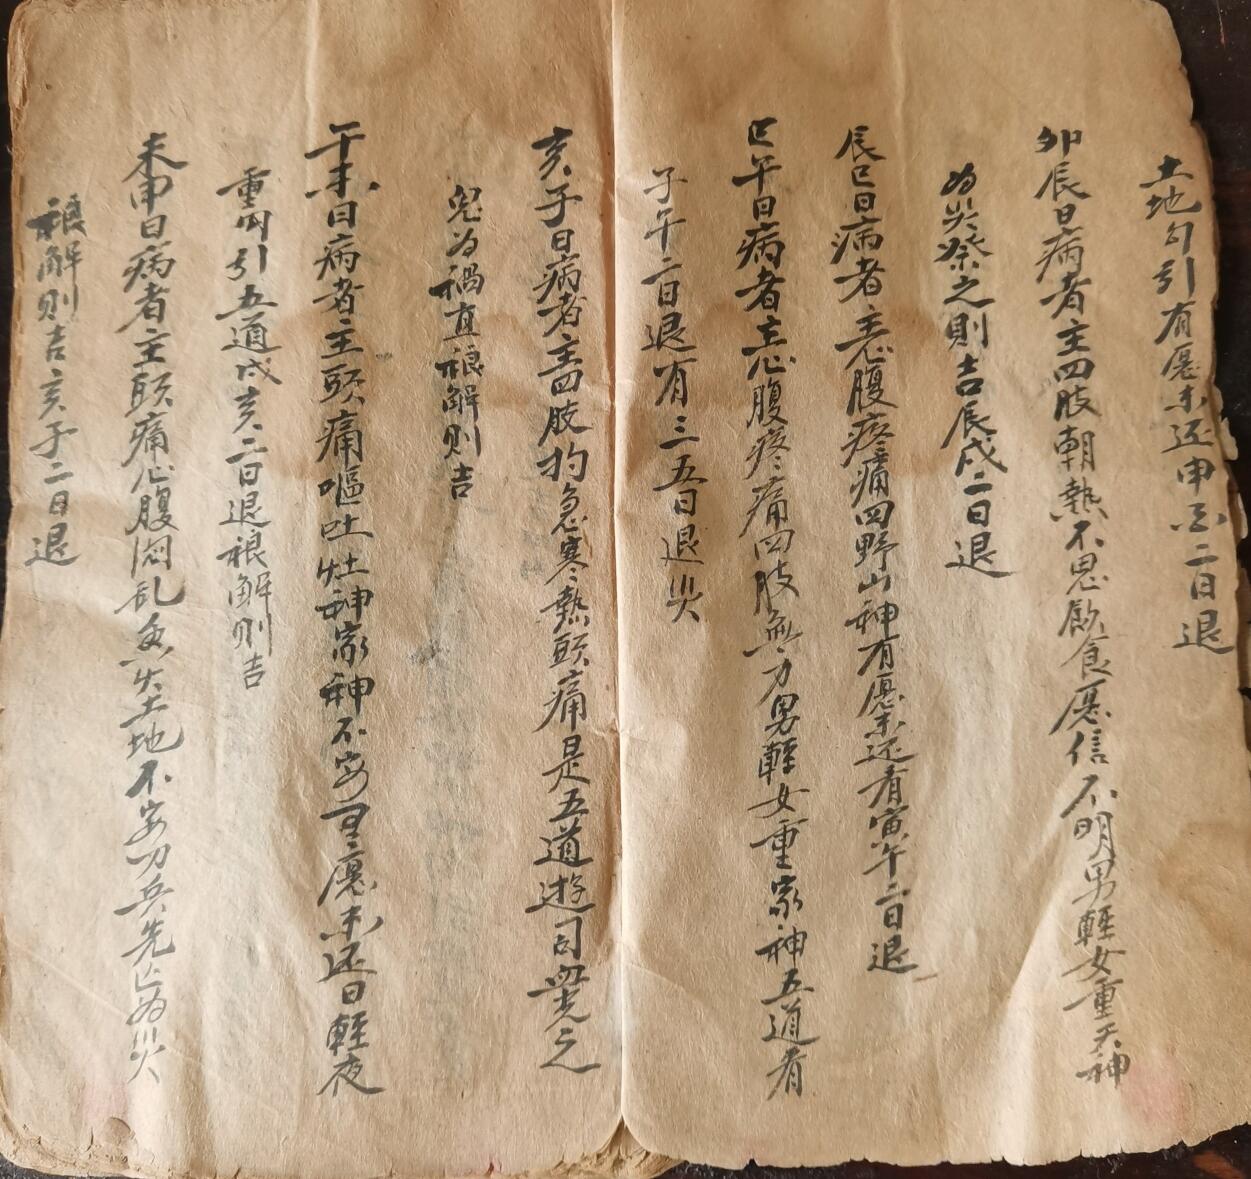 土地勾引有愿未还申酉二日退
卯辰日病者主四肢朝熱不思飲食愿信不明男輕女重天神
为災祭之則吉辰戌二日退
辰巳日病者主心腹疼痛四野山神有愿未还看寅午二日退
巳午日病者主心腹疼痛四肢無力男輕女重家神五道看
子午二日退有三五日退災
亥子日病者主四肢拘急寒熱頭痛是五道遊司无之
鬼为禍直禳解則吉
午未日病者主頭痛嘔吐灶神家神不安愿未还日輕夜
重勾引五道戌亥二日退禳解則吉
未申日病者主頭痛心腹悶乱土地不安刀兵先亡为災
禳解則吉亥子二日退